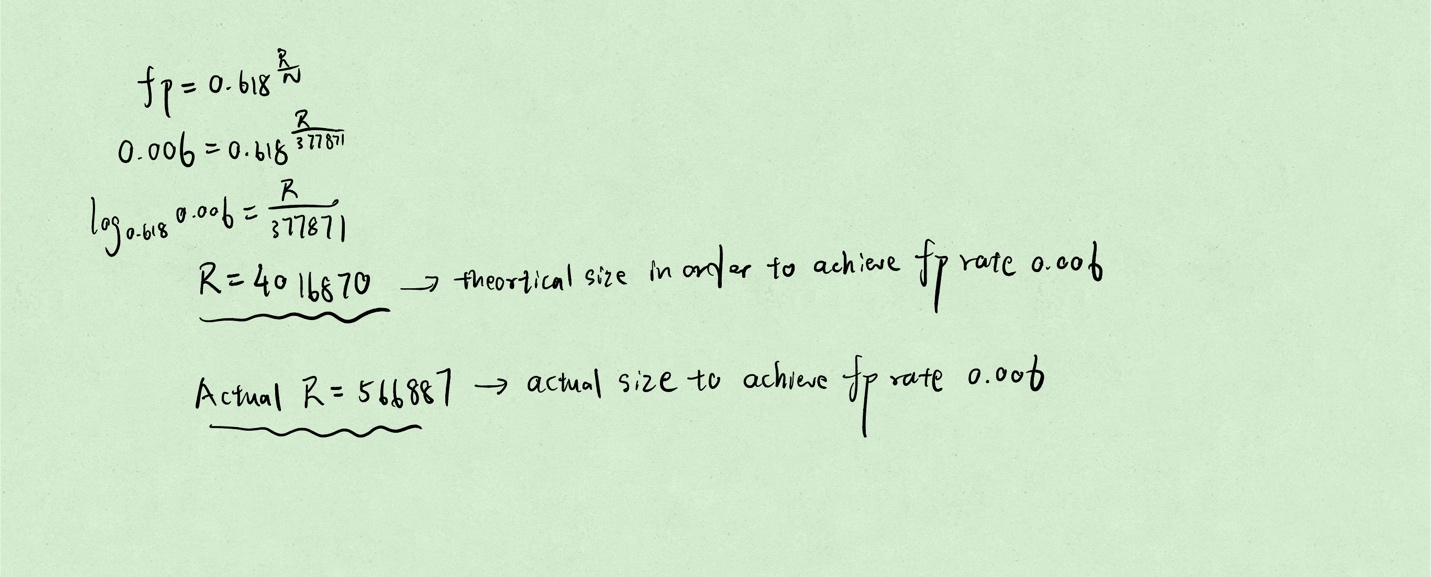 fp = 0.618^(R/N)
0.006 = 0.618^(R/377871)
log_0.618 0.006 = R/377871
R = 4016870 → theortical size in order to achieve fp rate 0.006
Actual R = 566887 → actual size to achieve fp rate 0.006